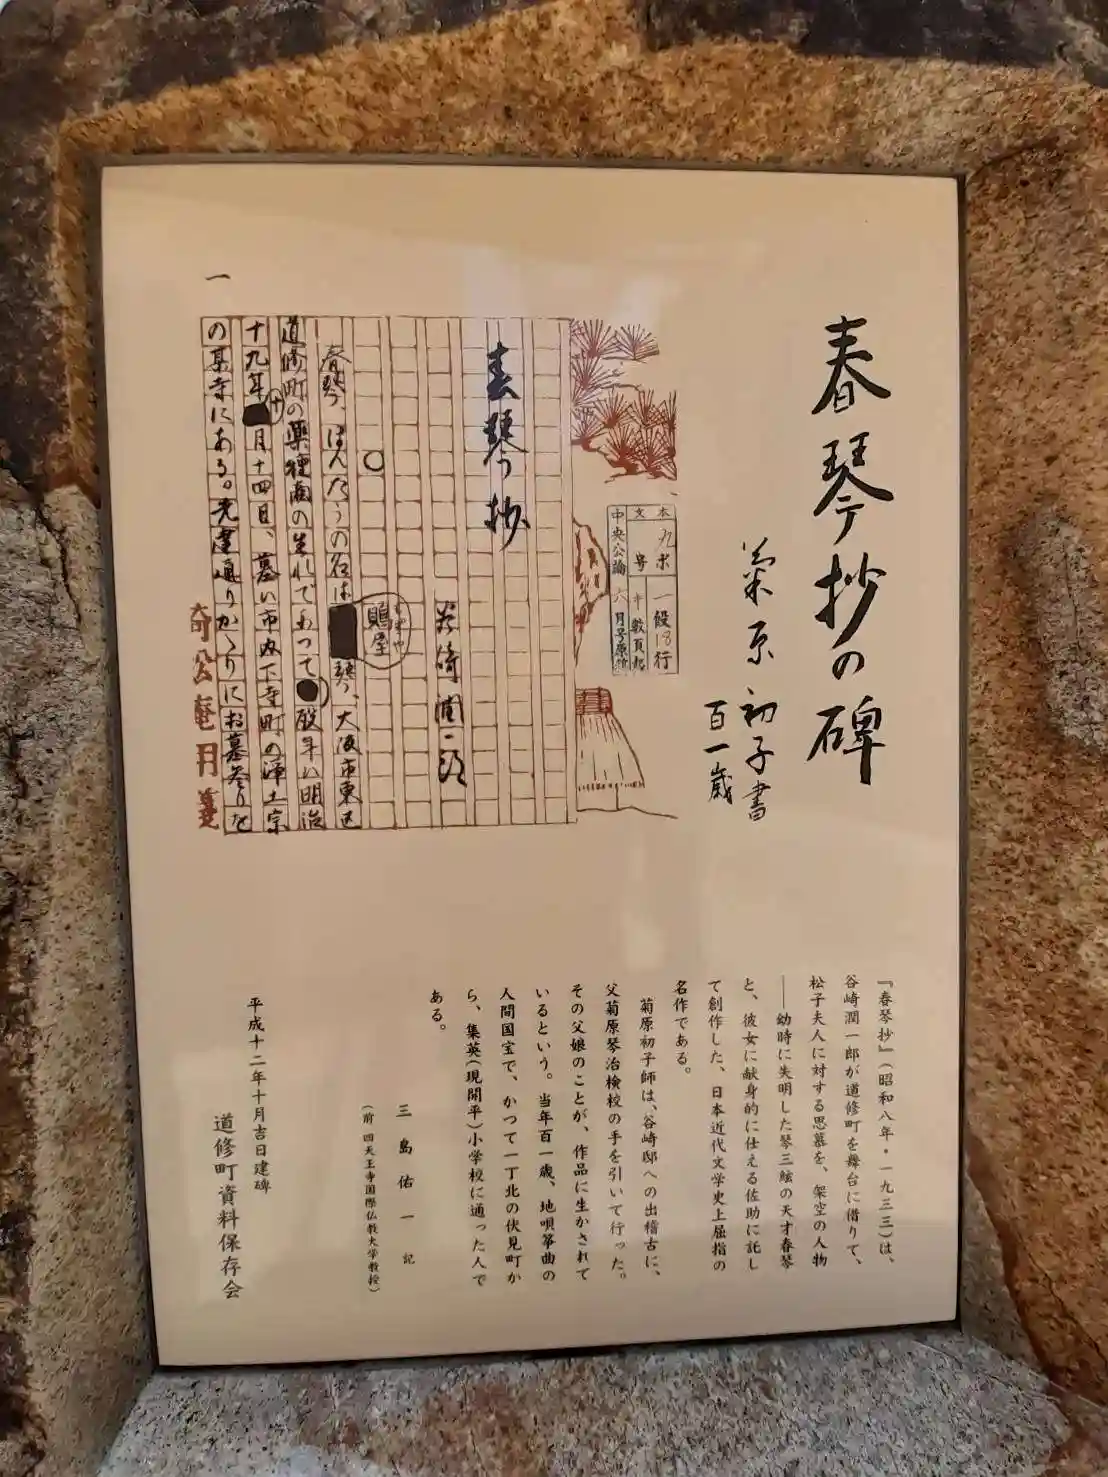 春琴抄の碑
菊原初子書
百一歳
本文 九ポ 一段18行
中央公論 六月号原稿
春琴抄
谷崎潤一郎
鵙屋
もずや
春琴、ほんたうの名は琴、大阪市東区
道修町の薬種商の生れであつて歿年は明治
十九年十月十四日、墓は市内下寺町の浄土宗
の某寺にある。先達通りかゝりにお墓参りを
一
倚松庵用箋
『春琴抄』(昭和八年・一九三三)は、
谷崎潤一郎が道修町を舞台に借りて、
松子夫人に対する思慕を、架空の人物
――幼時に失明した琴三絃の天才春琴
と、彼女に献身的に仕える佐助に託し
て創作した、日本近代文学史上屈指の
名作である。
菊原初子師は、谷崎邸への出稽古に、
父菊原琴治検校の手を引いて行った。
その父娘のことが、作品に生かされて
いるという。当年百一歳、地唄箏曲の
人間国宝で、かつて一丁北の伏見町か
ら、集英(現開平)小学校に通った人で
ある。
三島佑一 記
(前 四天王寺国際仏教大学教授)
平成十二年十月吉日建碑
道修町資料保存会